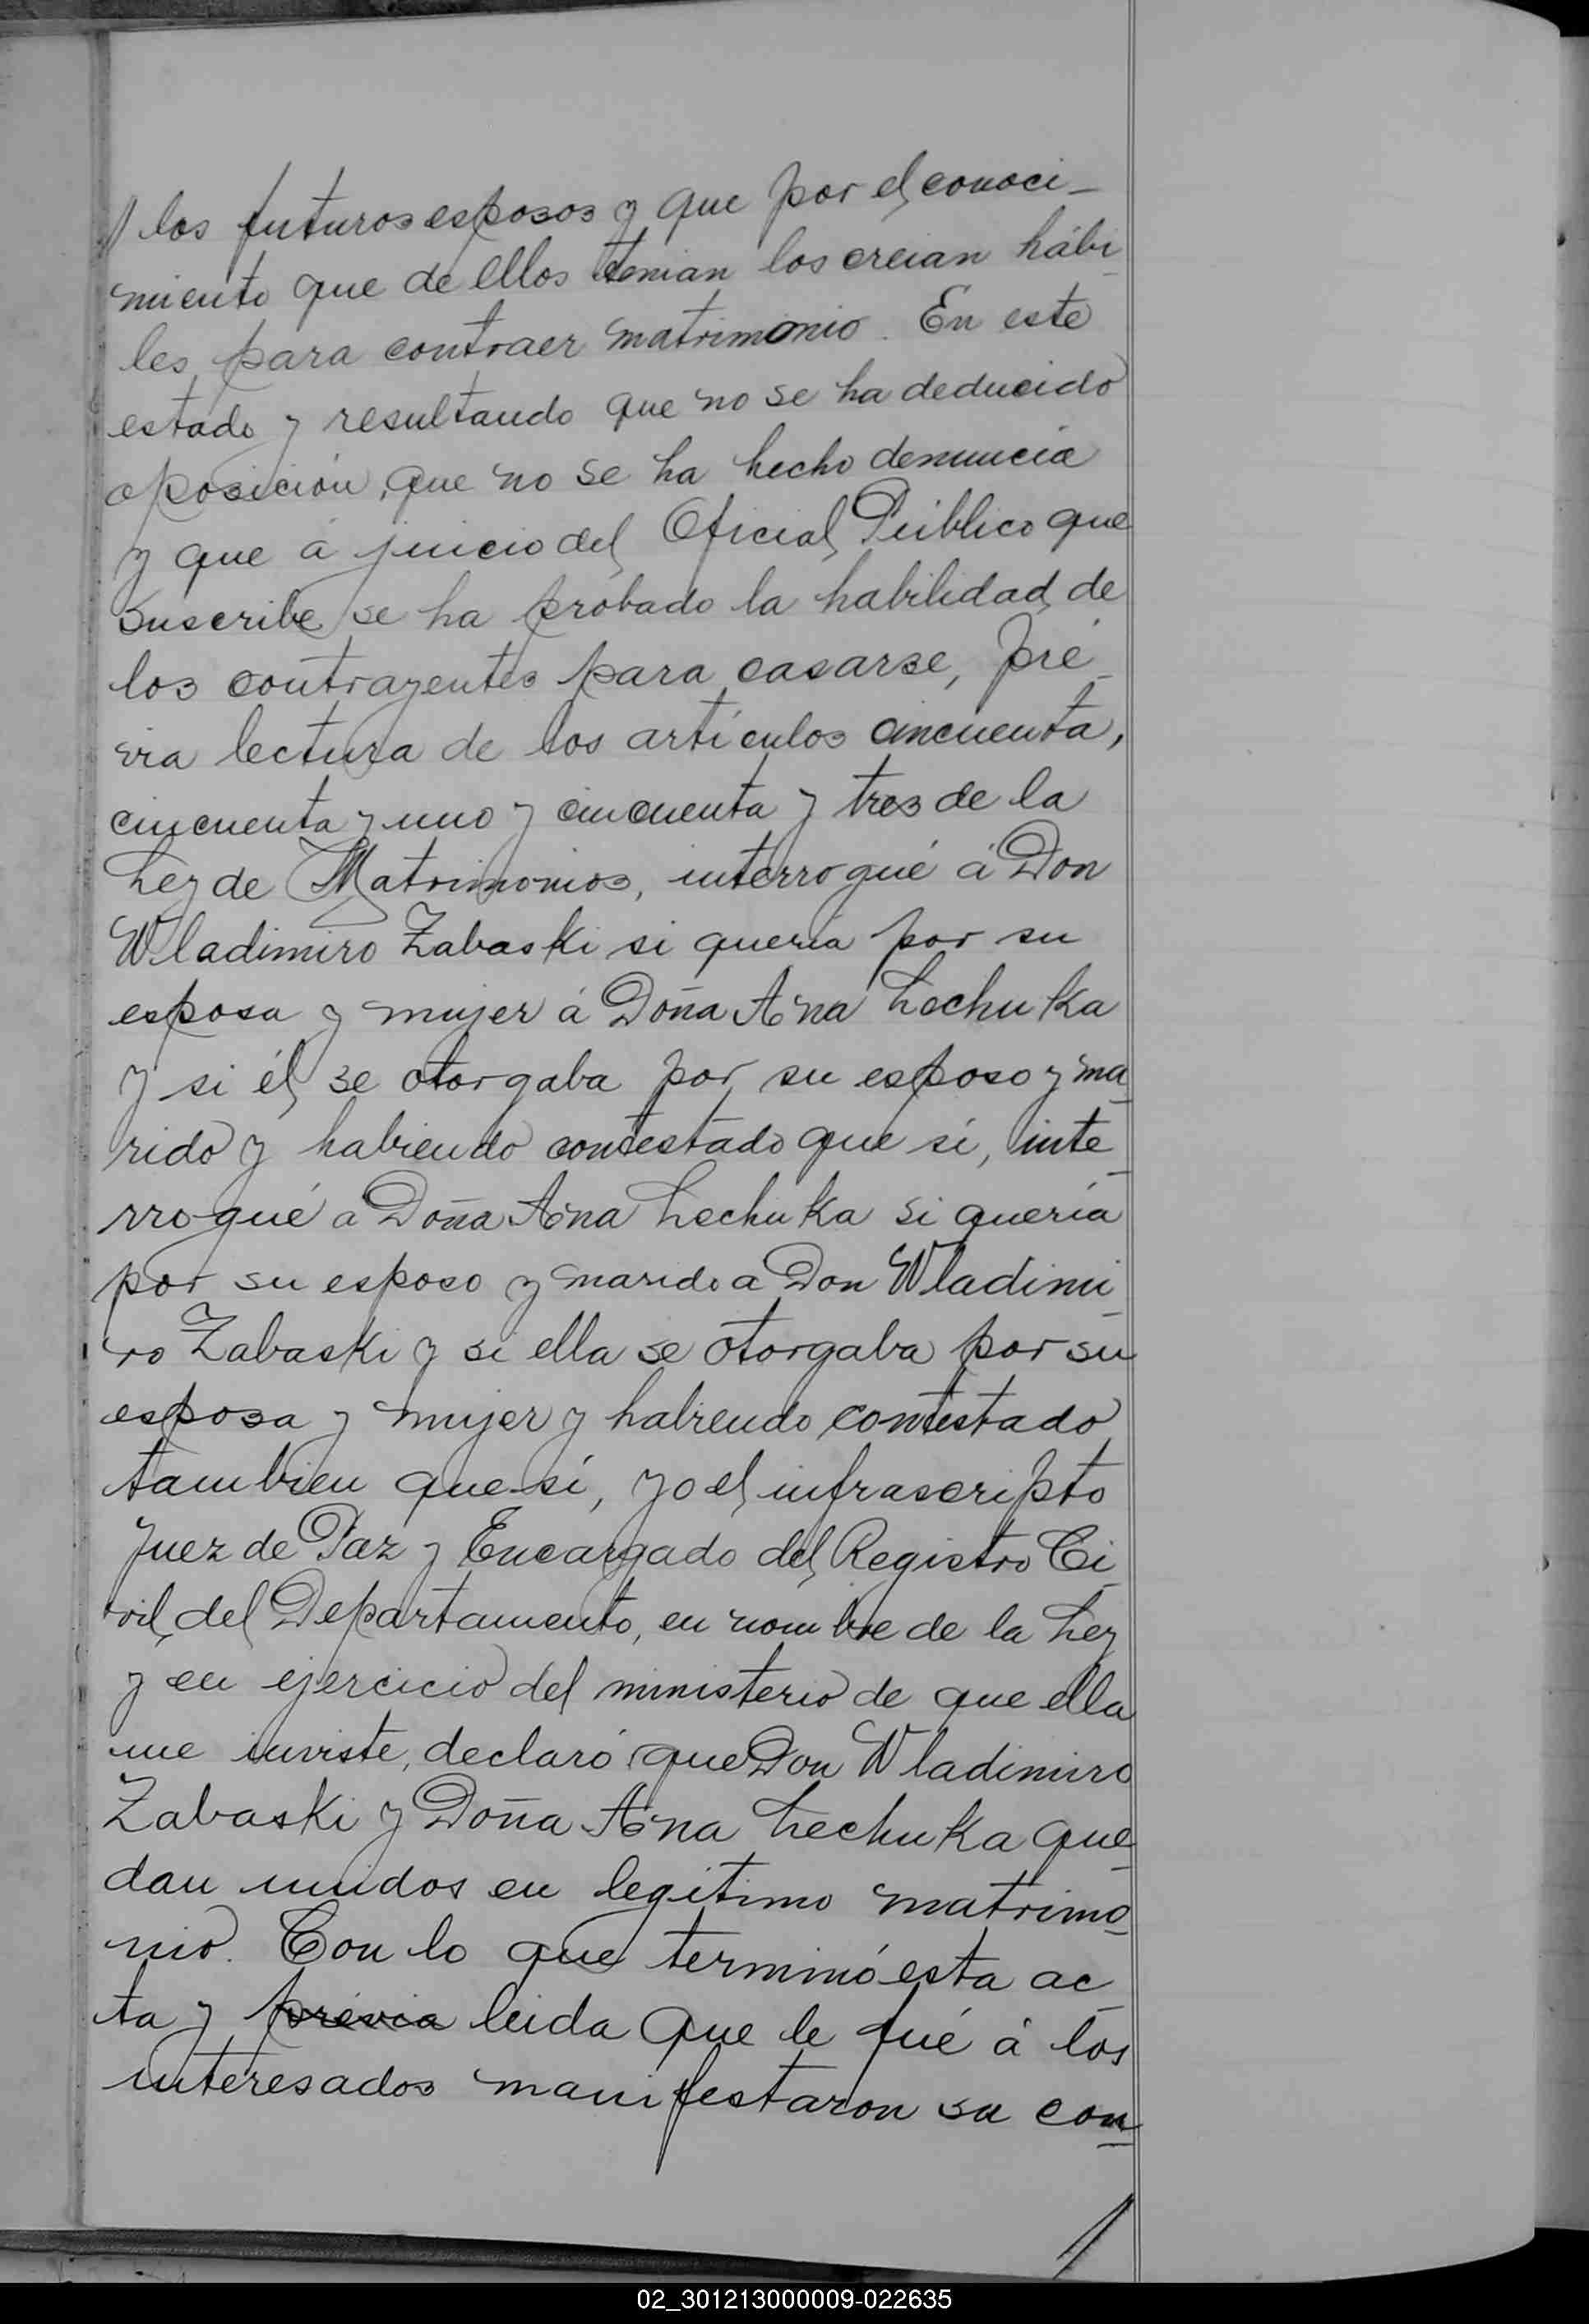 // los futuros esposos y que por el conoci-
miento que de ellos tenian los creian hábi-
les para contraer matrimonio. En este
estado y resultando que no se ha deducido
oposición, que no se ha hecho denuncia
y que á juicio del Oficial Público que
suscribe se ha probado la habilidad de
los contrayentes para casarse, pré-
via lectura de los artículos cincuenta,
cincuenta y uno y cincuenta y tres de la
Ley de Matrimonios, interrogué á Don
Wladimiro Zabaski si quería por su
esposa y mujer á Doña Ana Lechuka
y si él se otorgaba por su esposo y ma-
rido y habiendo contestado que sí, inte-
rrogué a Doña Ana Lechuka si quería
por su esposo y marido a Don Wladimi-
ro Zabaski y si ella se otorgaba por su
esposa y mujer y habiendo contestado
tambien que sí, yo el infrascripto
Juez de Paz y Encargado del Registro Ci-
vil del Departamento, en nombre de la Ley
y en ejercicio del ministerio de que ella
me inviste, declaró que Don Wladimiro
Zabaski y Doña Ana Lechuka que-
dan unidos en legitimo matrimo-
nio. Con lo que terminó esta ac-
ta y prévia leida que le fué á los
interesados manifestaron su con-
/
02_301213000009-022635